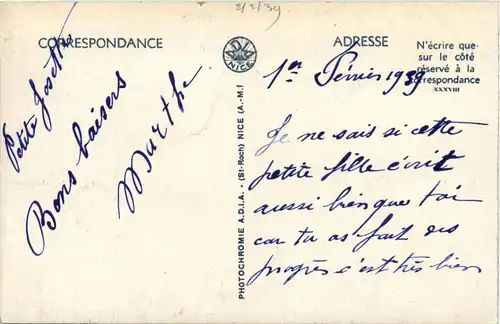 2/2/39
CORRESPONDANCE
Petite Josette
Bons baisers
Marthe
ADIA
NICE
PHOTOCHROMIE A.D.I.A. - (St-Roch) NICE (A.-M.)
ADRESSE
N'écrire que
sur le côté
réservé à la
correspondance
XXXVIII
1er Février 1939
Je ne sais si cette
petite fille écrit
aussi bien que toi
car tu as fait des
progrès c'est très bien